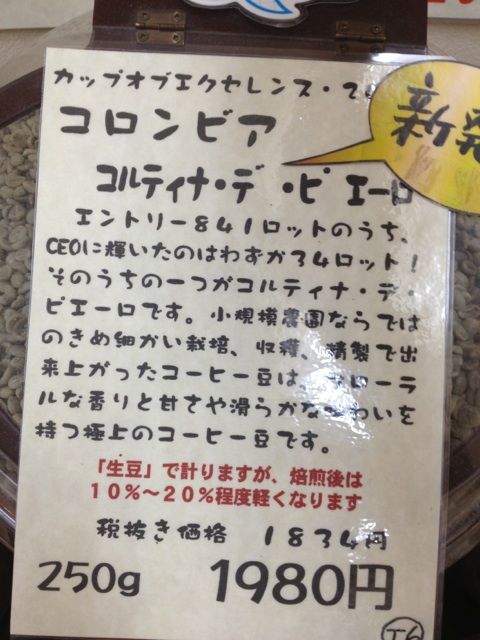 カップオブエクセレンス・2
新発
コロンビア
コルティナ・デ・ピエーロ
エントリー841ロットのうち、
CEOに輝いたのはわずか34ロット!
そのうちの一つがコルティナ・デ・
ピエーロです。小規模農園ならでは
のきめ細かい栽培、収穫、精製で出
来上がったコーヒー豆は、フローラ
ルな香りと甘さや滑らかな味わいを
持つ極上のコーヒー豆です。
「生豆」で計りますが、焙煎後は
10%~20%程度軽くなります
税抜き価格 1834円
250g 1980円